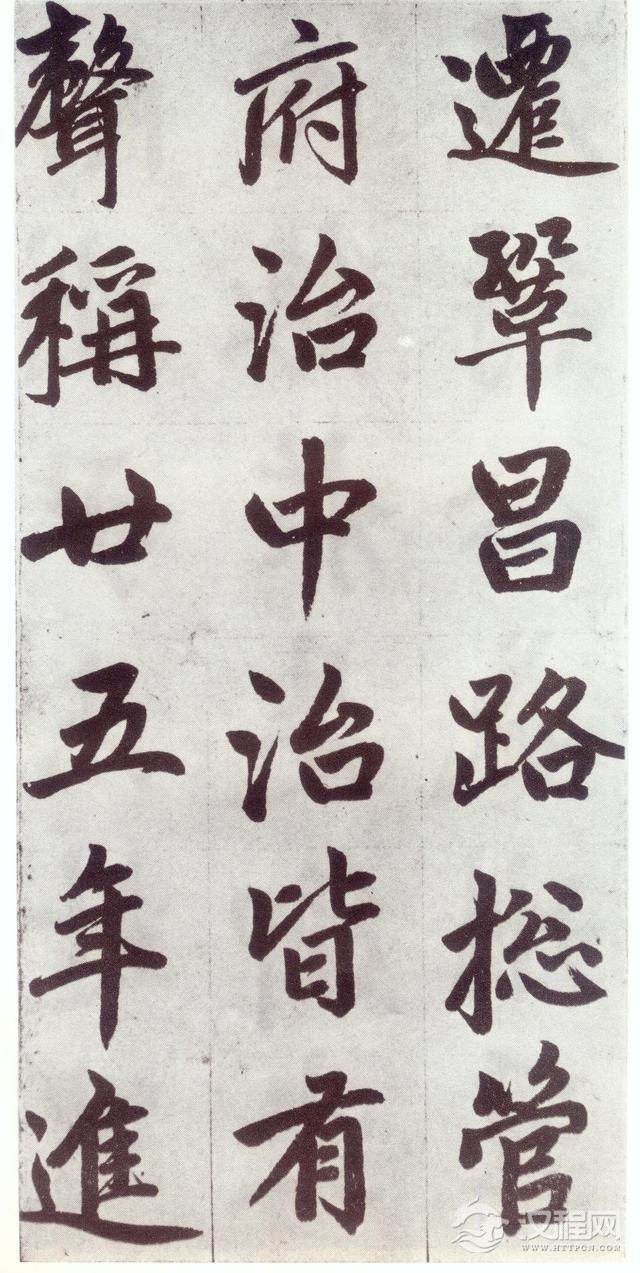 遷鞏昌路揔管
府治中治皆有
聲稱廿五年進
汉程网
WWW.HTTPCN.COM